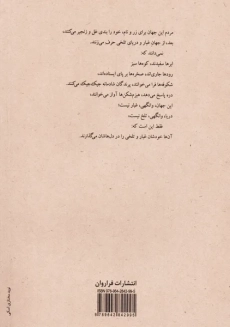 مردم این جهان برای زر و نام، خود را بندی غل و زنجیر می‌کنند،
بعد از جهان غبار و دریای تلخی حرف می‌زنند.
نمی‌دانند که:
ابرها سفیدند، کوه‌ها سبز
رودها جاری‌اند، صخره‌ها بر پای ایستاده‌اند،
شکوفه‌ها فرا می‌خوانند، پرندگان شادمانه جیک‌جیک می‌کنند.
دره پاسخ می‌دهد، هیزم‌شکن‌ها آواز می‌خوانند؛
این جهان، وانگهی، غبار نیست؛
دریا، وانگهی، تلخ نیست.
فقط این است که:
آن‌ها خودشان غبار و تلخی را در دل‌هاشان می‌گذارند.
انتشارات فراروان